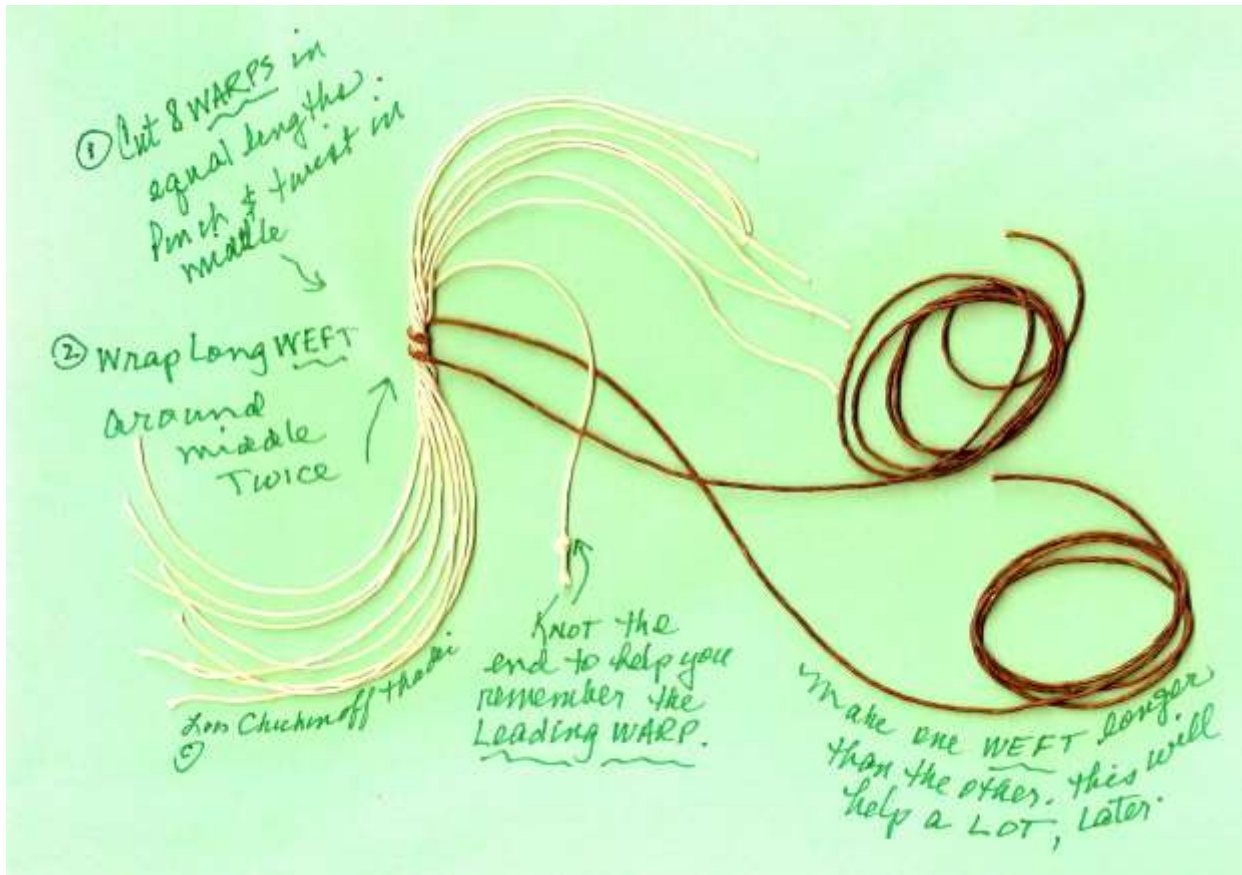 ① Cut 8 WARPS in
equal lengths.
Pinch & twist in
middle
② Wrap Long WEFT
around
middle
TWICE
KNOT the
end to help you
remember the
Leading WARP.
Make one WEFT longer
than the other. this will
help a LOT, Later.